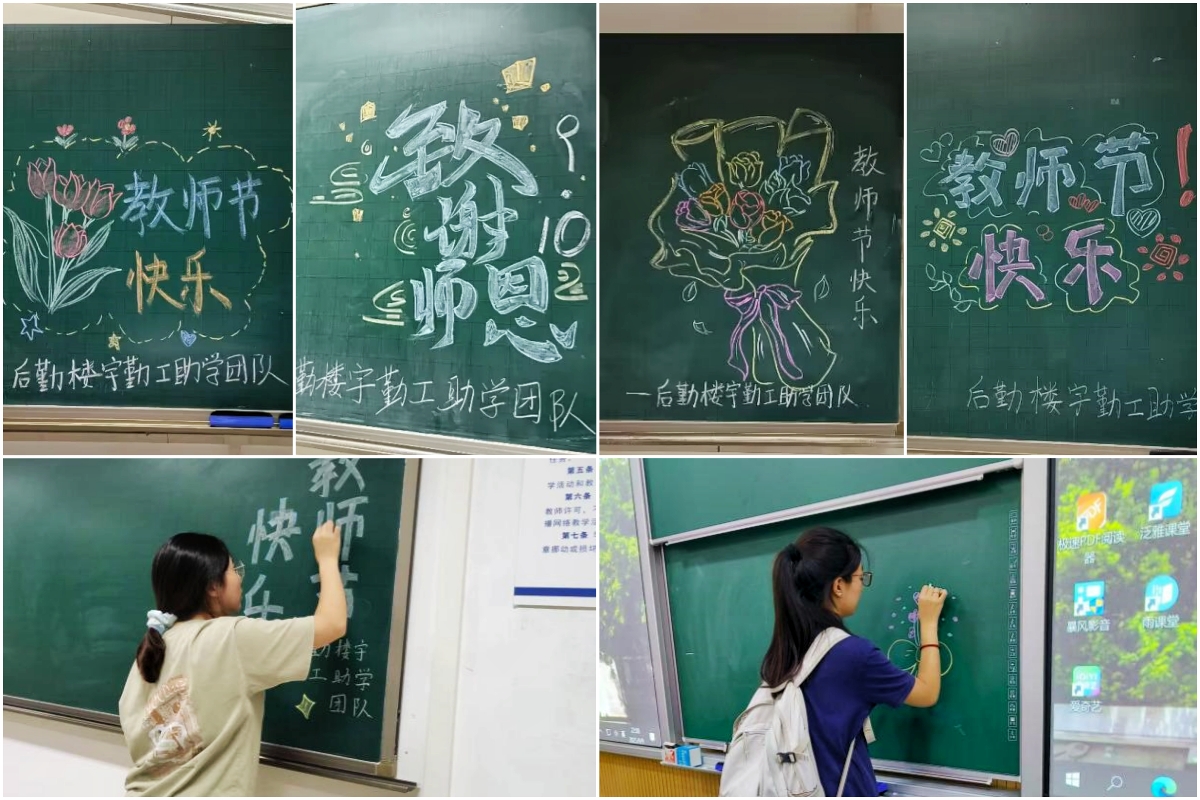 教师节
快乐
后勤楼宇勤工助学团队
致
谢
师恩
9.10
勤楼宇勤工助学团队
教师节快乐
一后勤楼宇勤工助学团队
教师节!
快乐
后勤楼宇勤工助学
教师节
快乐
勤楼宇
工助学
团队
第五条
学活动和教
第六条
教师许可，
播网络教学活
第七条
意挪动或损坏
极速PDF阅读
器
泛雅课堂
暴风影音
雨课堂
爱奇艺